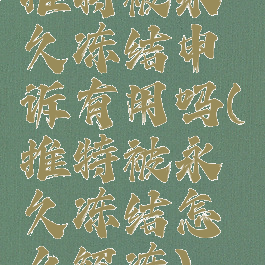 推特被永
久冻结申
诉有用吗(
推特被永
久冻结怎
么解冻)